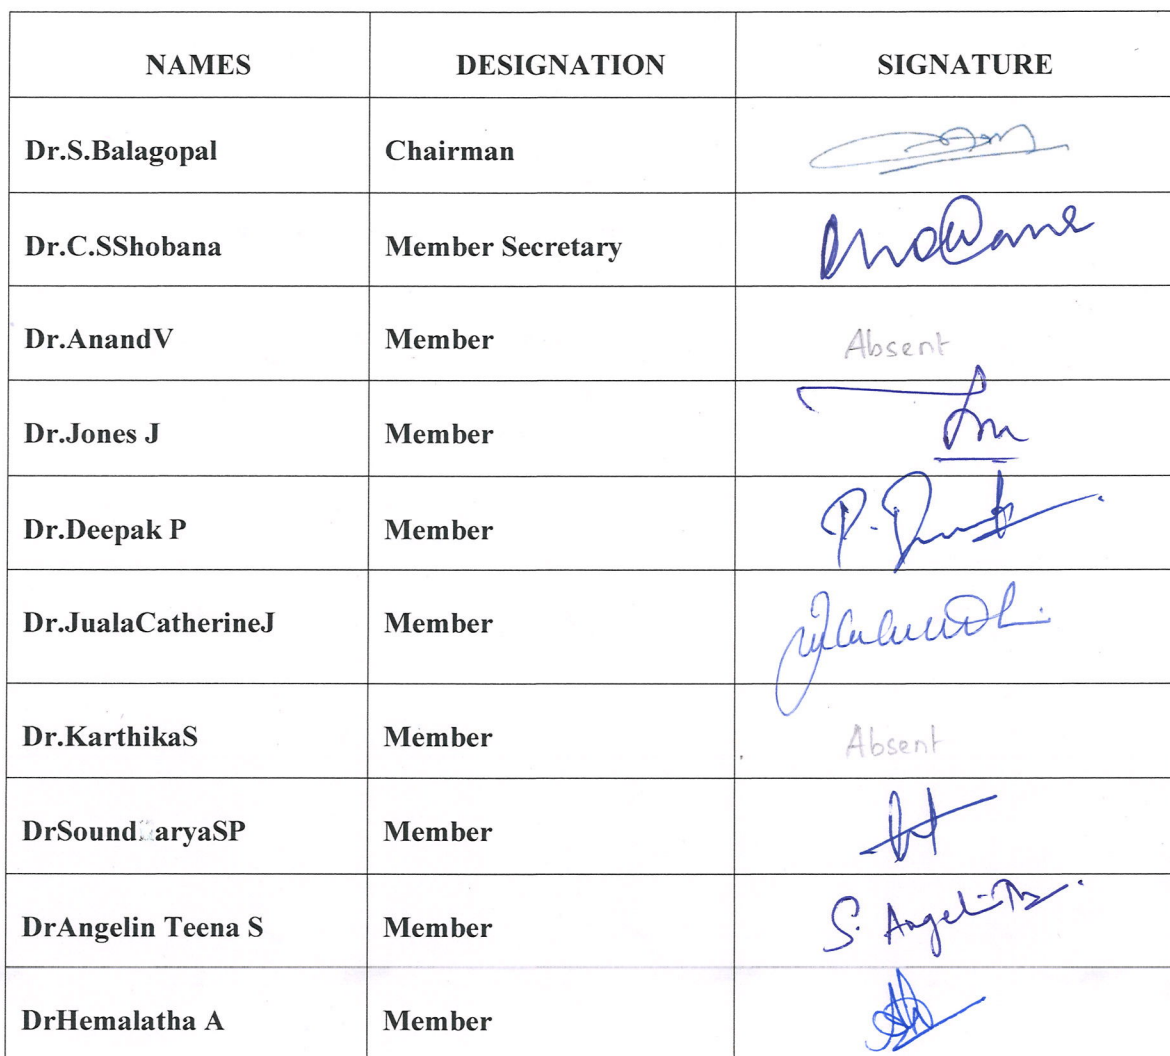 NAMES DESIGNATION SIGNATURE
Dr.S.Balagopal Chairman
Dr.C.SShobana Member Secretary
Dr.AnandV Member Absent
Dr.Jones J Member
Dr.Deepak P Member
Dr.JualaCatherineJ Member
Dr.KarthikaS Member Absent
DrSound aryaSP Member
DrAngelin Teena S Member S. Angelin
DrHemalatha A Member